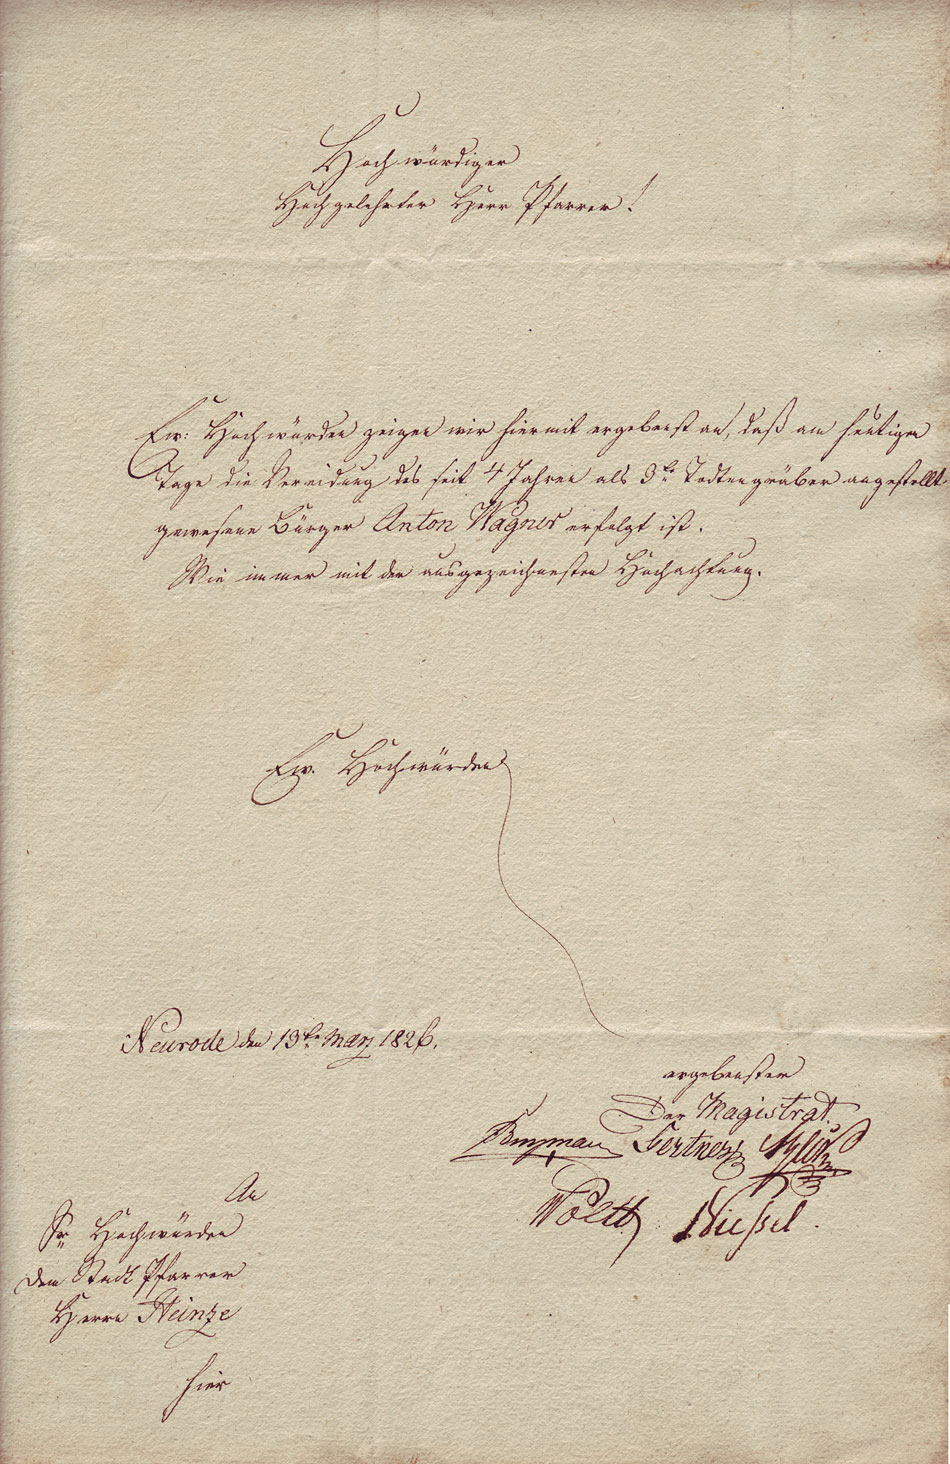 Hochwürdiger
Hochgelehrter Herr Pfarrer!
Ew: Hochwürden zeigen wir hiermit ergebenst an, daß am heutigen
Tage die Vereidung des seit 4 Jahren als 3te Todtengräber angestellt
gewesene Bürger Anton Wagner erfolgt ist.
Wie immer mit der ausgezeichnesten Hochachtung.
Ew. Hochwürden
Neurode den 13te März 1826.
ergebenster
Der Magistrat.
Gertner
Niessel.
An
Sr Hochwürden
dem Stadt Pfarrer
Herrn Heinze
hier